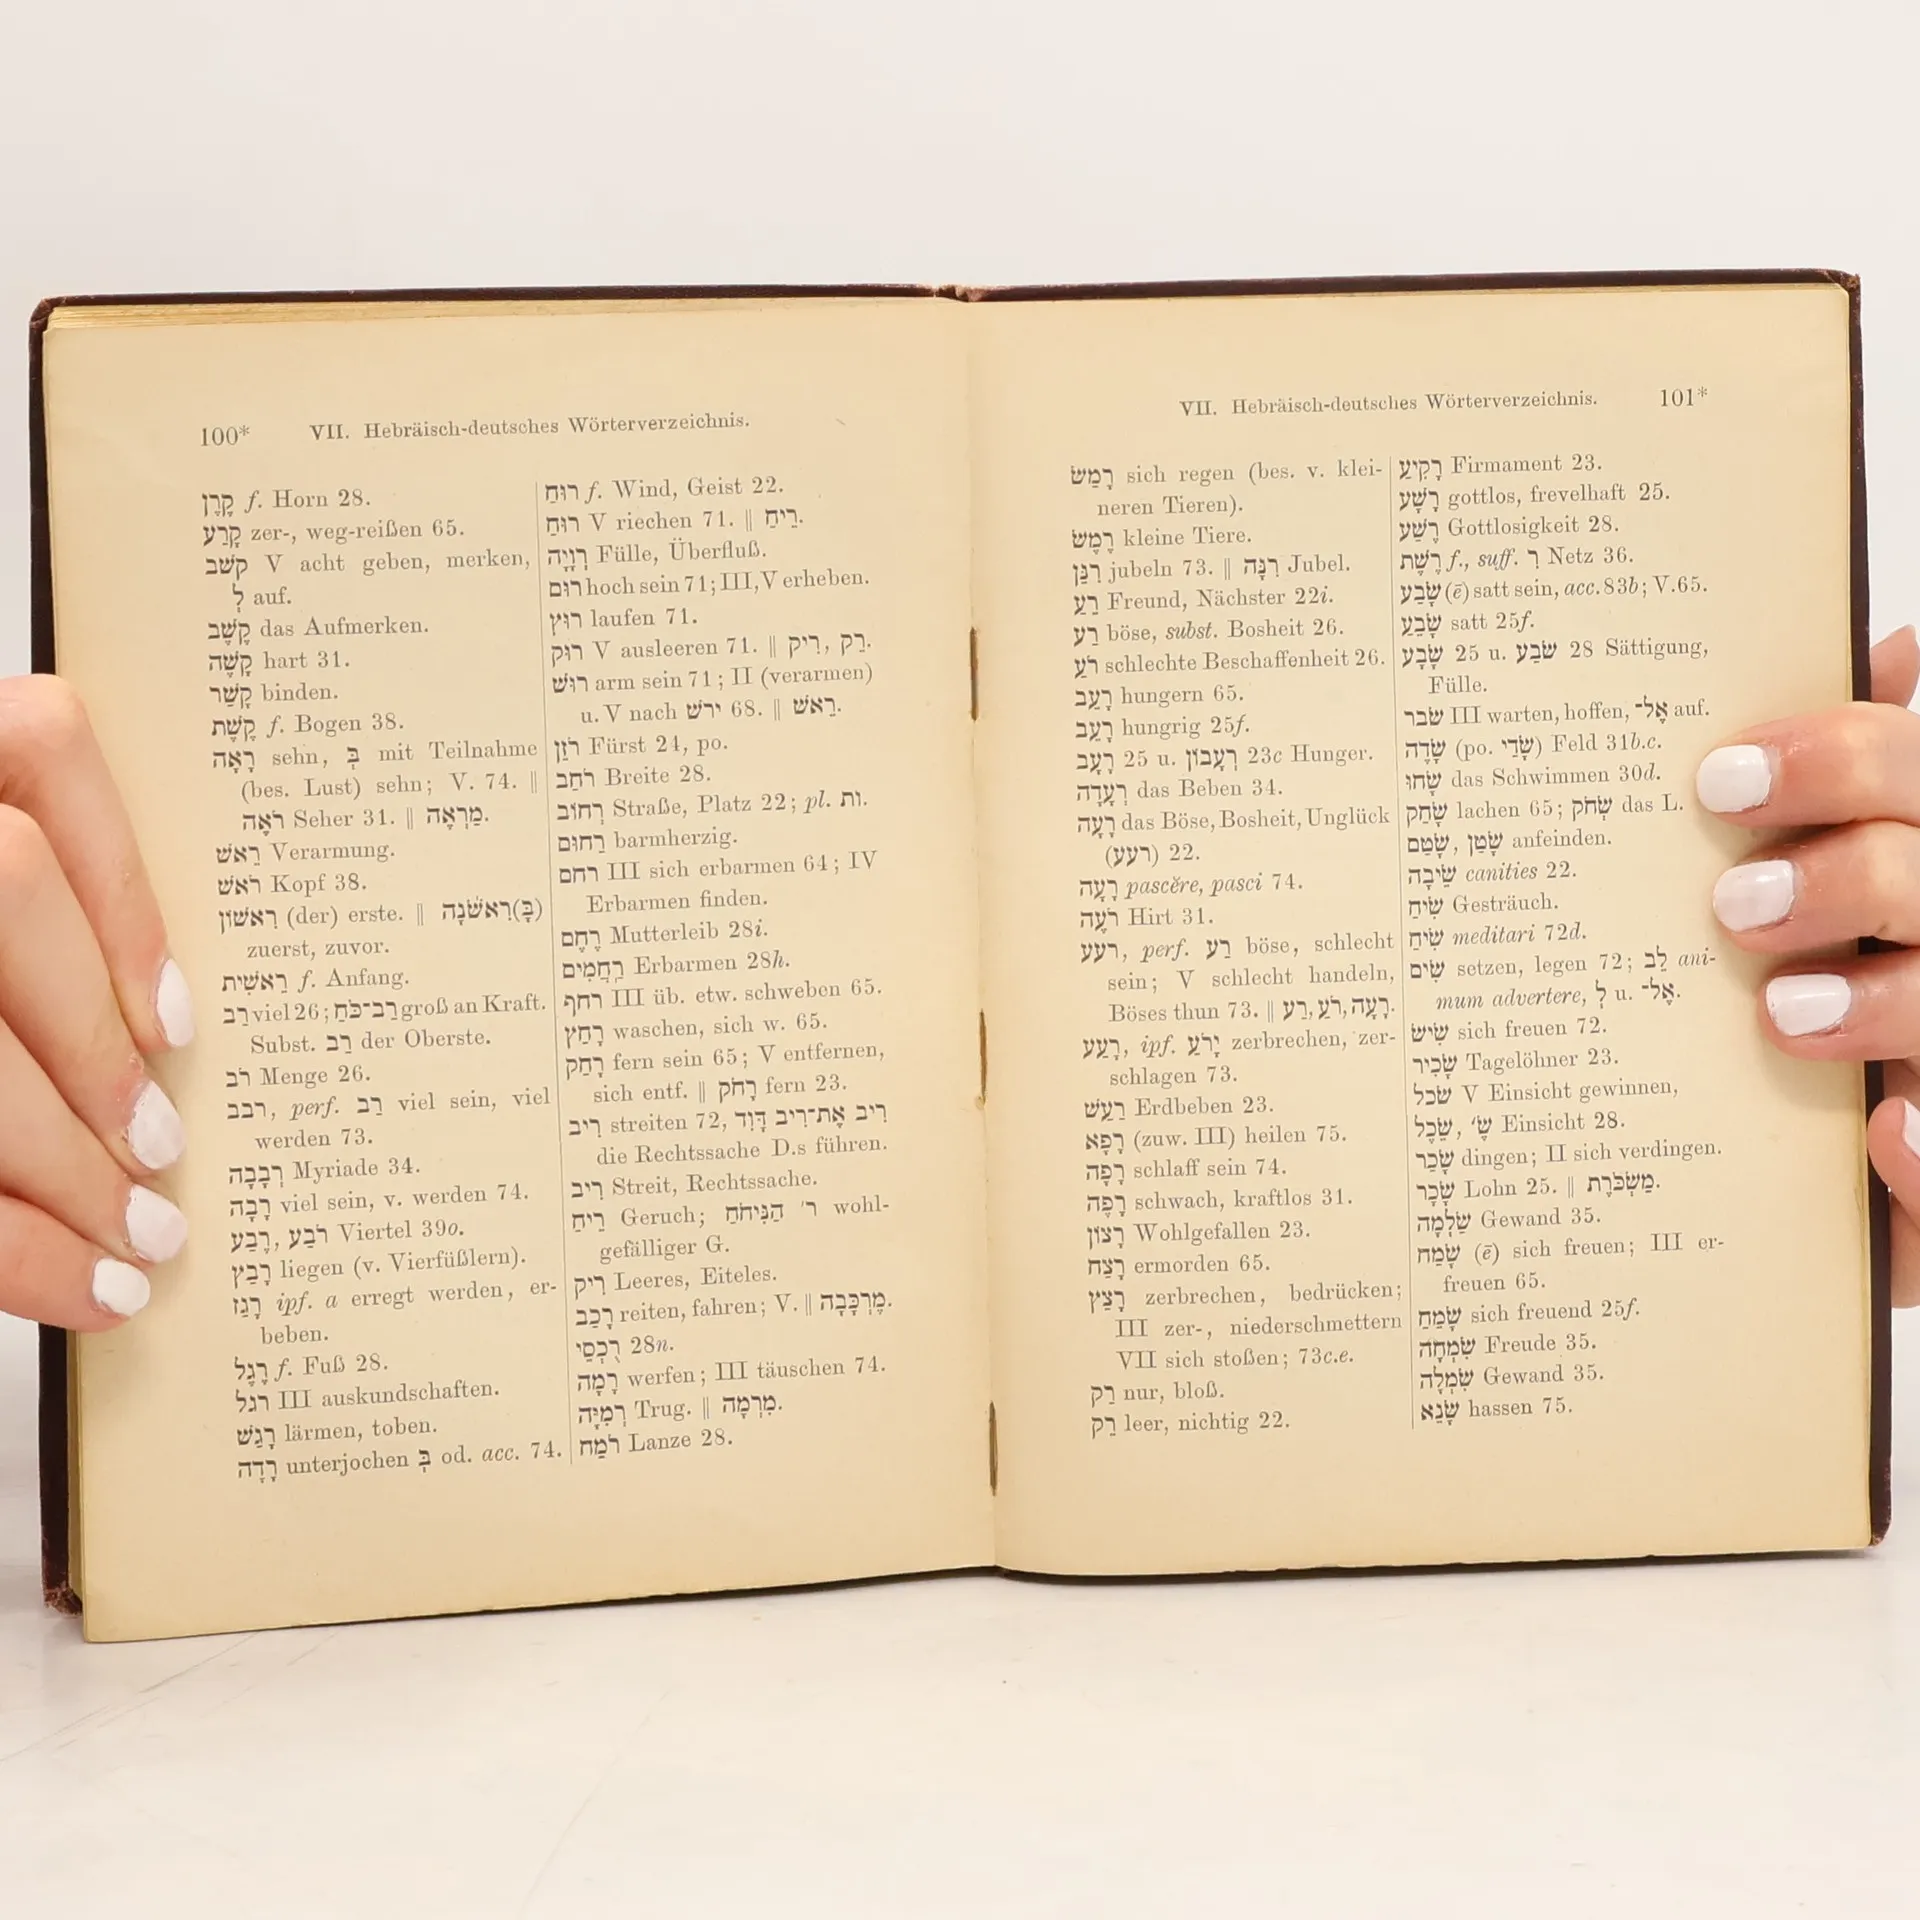 100* VII. Hebräisch-deutsches Wörterverzeichnis.
קֶרֶן f. Horn 28.
קָרַע zer-, weg-reißen 65.
קשׁב V acht geben, merken,
לְ auf.
קֶשֶׁב das Aufmerken.
קָשֶׁה hart 31.
קָשַׁר binden.
קֶשֶׁת f. Bogen 38.
רָאָה sehn, בְּ mit Teilnahme
(bes. Lust) sehn; V. 74. ‖
רֹאֶה Seher 31. ‖ מַרְאֶה.
רֵאשׁ Verarmung.
רֹאשׁ Kopf 38.
רִאשׁוֹן (der) erste. ‖ (בָּ)רִאשֹׁנָה
zuerst, zuvor.
רֵאשִׁית f. Anfang.
רַב viel 26; רַב־כֹּחַ groß an Kraft.
Subst. רַב der Oberste.
רֹב Menge 26.
רבב, perf. רַב viel sein, viel
werden 73.
רְבָבָה Myriade 34.
רָבָה viel sein, v. werden 74.
רֹבַע, רֶבַע Viertel 39o.
רָבַץ liegen (v. Vierfüßlern).
רָגַז ipf. a erregt werden, er-
beben.
רֶגֶל f. Fuß 28.
רגל III auskundschaften.
רָגַשׁ lärmen, toben.
רָדָה unterjochen בְּ od. acc. 74.
רוּחַ f. Wind, Geist 22.
רוּחַ V riechen 71. ‖ רֵיחַ.
רְוָיָה Fülle, Überfluß.
רוּם hoch sein 71; III, V erheben.
רוּץ laufen 71.
רוּק V ausleeren 71. ‖ רַק, רִיק.
רוּשׁ arm sein 71; II (verarmen)
u. V nach ירשׁ 68. ‖ רֵאשׁ.
רֹזֵן Fürst 24, po.
רֹחַב Breite 28.
רְחוֹב Straße, Platz 22; pl. וֹת.
רַחוּם barmherzig.
רחם III sich erbarmen 64; IV
Erbarmen finden.
רֶחֶם Mutterleib 28i.
רַחֲמִים Erbarmen 28h.
רחף III üb. etw. schweben 65.
רָחַץ waschen, sich w. 65.
רָחַק fern sein 65; V entfernen,
sich entf. ‖ רָחֹק fern 23.
רִיב streiten 72, רִיב אֶת־רִיב דָּוִד
die Rechtssache D.s führen.
רִיב Streit, Rechtssache.
רֵיחַ Geruch; ר׳ הַנִּיחֹחַ wohl-
gefälliger G.
רִיק Leeres, Eiteles.
רָכַב reiten, fahren; V. ‖ מֶרְכָּבָה.
רֻכְסֵי 28n.
רָמָה werfen; III täuschen 74.
רְמִיָּה Trug. ‖ מִרְמָה.
רֹמַח Lanze 28.
VII. Hebräisch-deutsches Wörterverzeichnis. 101*
רָמַשׂ sich regen (bes. v. klei-
neren Tieren).
רֶמֶשׂ kleine Tiere.
רִנֵּן jubeln 73. ‖ רִנָּה Jubel.
רֵעַ Freund, Nächster 22i.
רַע böse, subst. Bosheit 26.
רֹעַ schlechte Beschaffenheit 26.
רָעֵב hungern 65.
רָעֵב hungrig 25f.
רָעָב 25 u. רְעָבוֹן 23c Hunger.
רְעָדָה das Beben 34.
רָעָה das Böse, Bosheit, Unglück
(רעע) 22.
רָעָה pascĕre, pasci 74.
רֹעֶה Hirt 31.
רעע, perf. רַע böse, schlecht
sein; V schlecht handeln,
Böses thun 73. ‖ רָעָה, רֹעַ, רַע.
רָעַע, ipf. יָרֹעַ zerbrechen, zer-
schlagen 73.
רַעַשׁ Erdbeben 23.
רָפָא (zuw. III) heilen 75.
רָפָה schlaff sein 74.
רָפֶה schwach, kraftlos 31.
רָצוֹן Wohlgefallen 23.
רָצַח ermorden 65.
רָצַץ zerbrechen, bedrücken;
III zer-, niederschmettern
VII sich stoßen; 73c.e.
רַק nur, bloß.
רֵק leer, nichtig 22.
רָקִיעַ Firmament 23.
רָשָׁע gottlos, frevelhaft 25.
רֶשַׁע Gottlosigkeit 28.
רֶשֶׁת f., suff. רִ Netz 36.
שָׂבַע (ē) satt sein, acc. 83b; V. 65.
שָׂבֵעַ satt 25f.
שָׂבָע 25 u. שֹׂבַע 28 Sättigung,
Fülle.
שׂבר III warten, hoffen, אֶל־ auf.
שָׂדֶה (po. שָׂדַי) Feld 31b.c.
שָׂחוּ das Schwimmen 30d.
שָׂחַק lachen 65; שְׂחֹק das L.
שָׂטַם, שָׂטַן anfeinden.
שֵׂיבָה canities 22.
שִׂיחַ Gesträuch.
שִׂיחַ meditari 72d.
שִׂים setzen, legen 72; לֵב ani-
mum advertere, לְ u. אֶל־.
שִׂישׂ sich freuen 72.
שָׂכִיר Tagelöhner 23.
שׂכל V Einsicht gewinnen,
שֵׂכֶל, שֶׂ׳ Einsicht 28.
שָׂכַר dingen; II sich verdingen.
שָׂכָר Lohn 25. ‖ מַשְׂכֹּרֶת.
שַׂלְמָה Gewand 35.
שָׂמַח (ē) sich freuen; III er-
freuen 65.
שָׂמֵחַ sich freuend 25f.
שִׂמְחָה Freude 35.
שִׂמְלָה Gewand 35.
שָׂנֵא hassen 75.